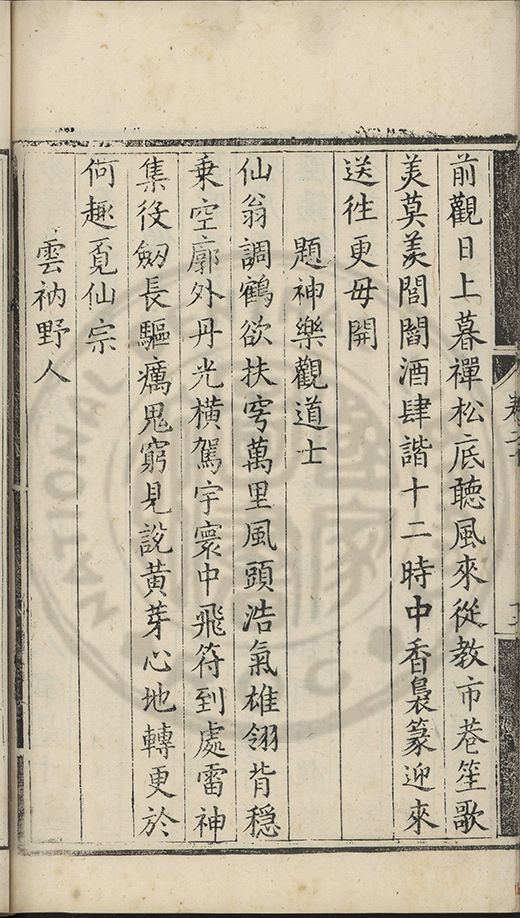 前觀日上暮禪松底聽風來從教市巷笙歌
美莫羨閭閻酒肆諧十二時中香裊篆迎來
送往更毋開
題神樂觀道士
仙翁調鶴欲扶穹萬里風頭浩氣雄翎背穩
乗空廓外丹光橫駕宇寰中飛符到處雷神
集役劒長驅癘鬼窮見説黃芽心地轉更於
何趣覓仙宗
雲衲野人
卷二十